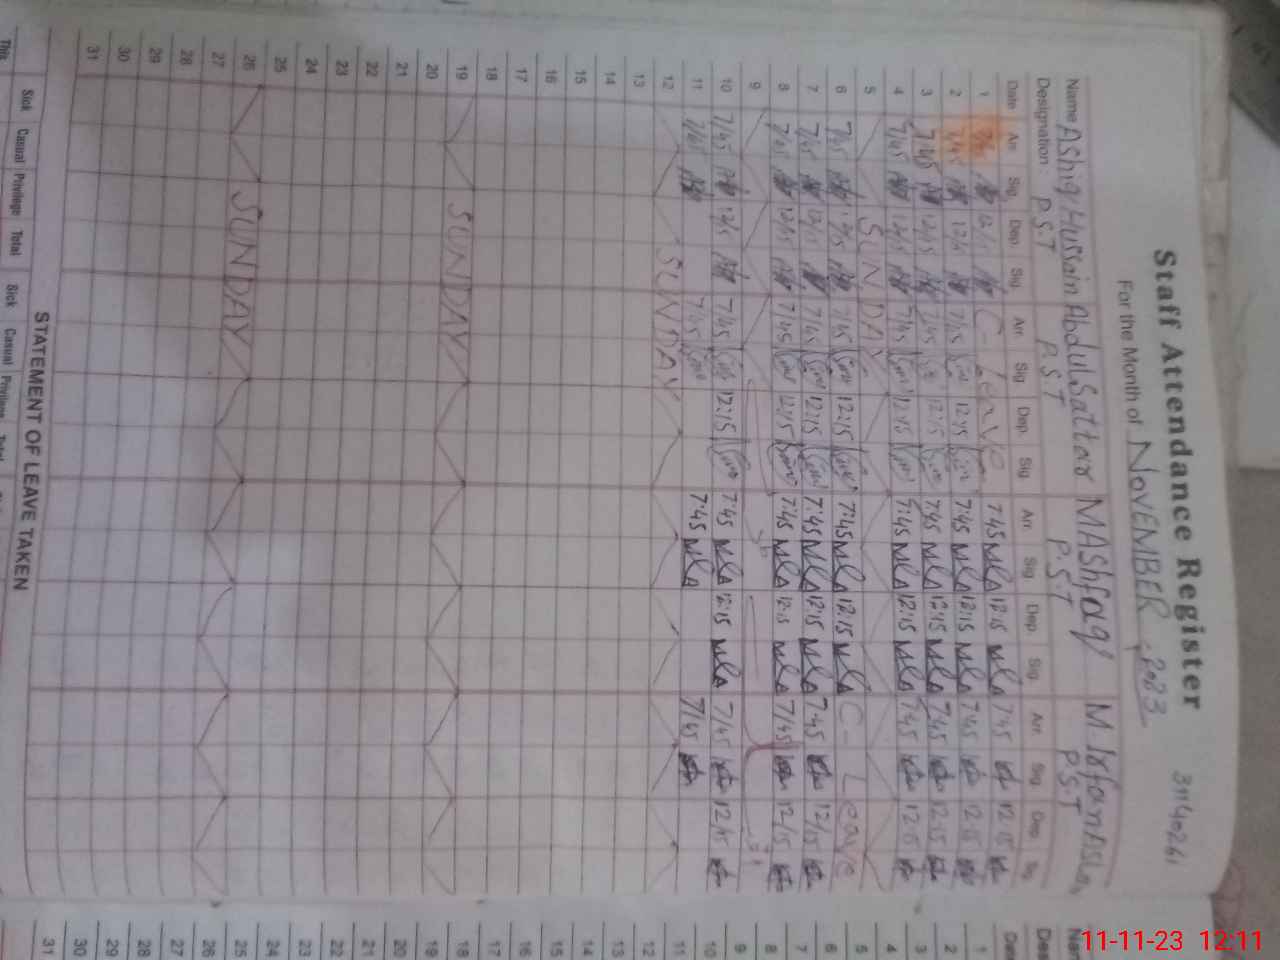 Staff Attendance Register
31140261
For the Month of NOVEMBER, 2023
Name Ashiq Hussain Abdul Sattar M Ashfaq M. Irfan
Designation: P.S.T P.S.T P.S.T P.S.T
Date Arr. Sig. Dep. Sig. Arr. Sig. Dep. Sig. Arr. Sig. Dep. Sig. Arr. Sig. Dep. Sig.
1 12/15 C-Leave 7:45 12:15 7:45 12:15
2 7/45 12/15 7/45 12:15 7:45 12:15 7:45 12:15
3 7:45 12/15 7/45 12:15 7:45 12:15 7:45 12:15
4 7/45 12/15 7/45 12:15 7:45 12:15 7:45 12:15
5 SUNDAY
6 7/45 12/15 7/45 12:15 7:45 12:15 C-Leave
7 7/45 12/15 7/45 12:15 7:45 12:15 7:45 12/15
8 7/45 12/15 7/45 12:15 7:45 12:15 7/45 12/15
9
10 7/45 12/15 7/45 12:15 7:45 12:15 7/45 12/15
11 7/45 7/45 7:45 7/45
12 SUNDAY
13
14
15
16
17
18
19 SUNDAY
20
21
22
23
24
25
26 SUNDAY
27
28
29
30
31
STATEMENT OF LEAVE TAKEN
Sick Casual Privilege Total Sick Casual Privilege Total
This
1
2
3
4
5
6
7
8
9
10
11
12
13
14
15
16
17
18
19
20
21
22
23
24
25
26
27
28
29
30
31
11-11-23 12:11